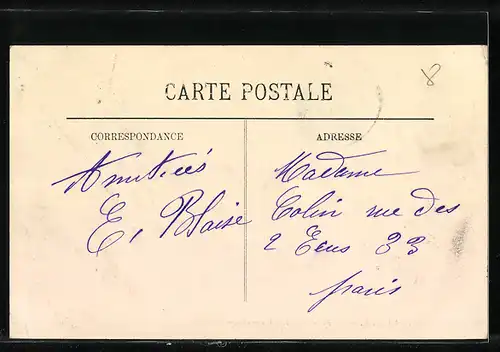 CARTE POSTALE
CORRESPONDANCE
ADRESSE
Amitiés
E, Blaise
Madame
Colin rue des
2 Ecus 33
paris
8